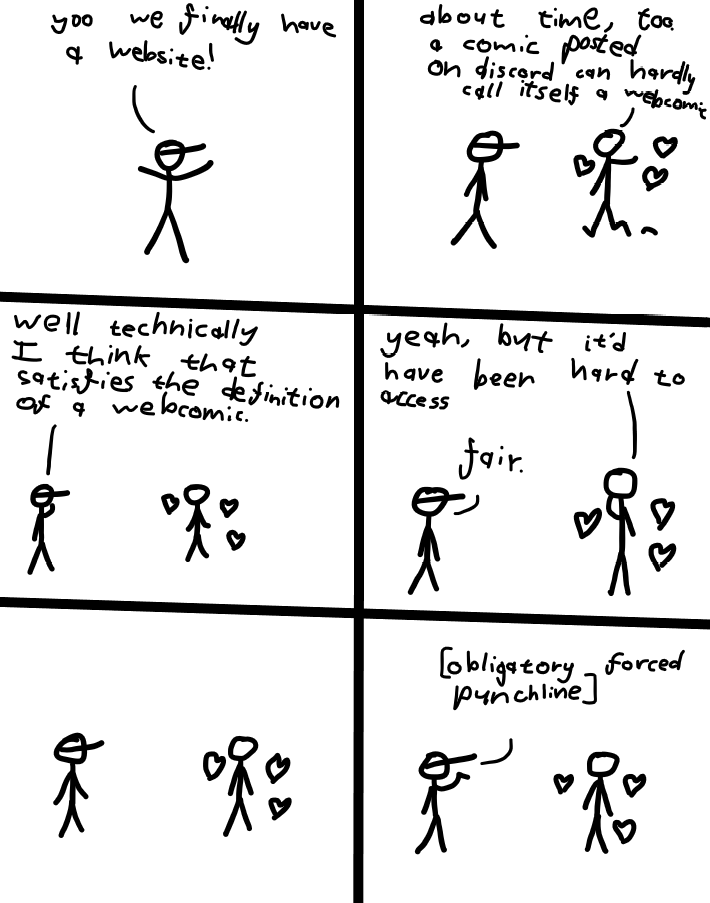 yoo we finally have
a website!
about time, too.
a comic posted
on discord can hardly
call itself a webcomic
well technically
I think that
satisfies the definition
of a webcomic.
yeah, but it'd
have been hard to
access
fair.
[obligatory forced
punchline]